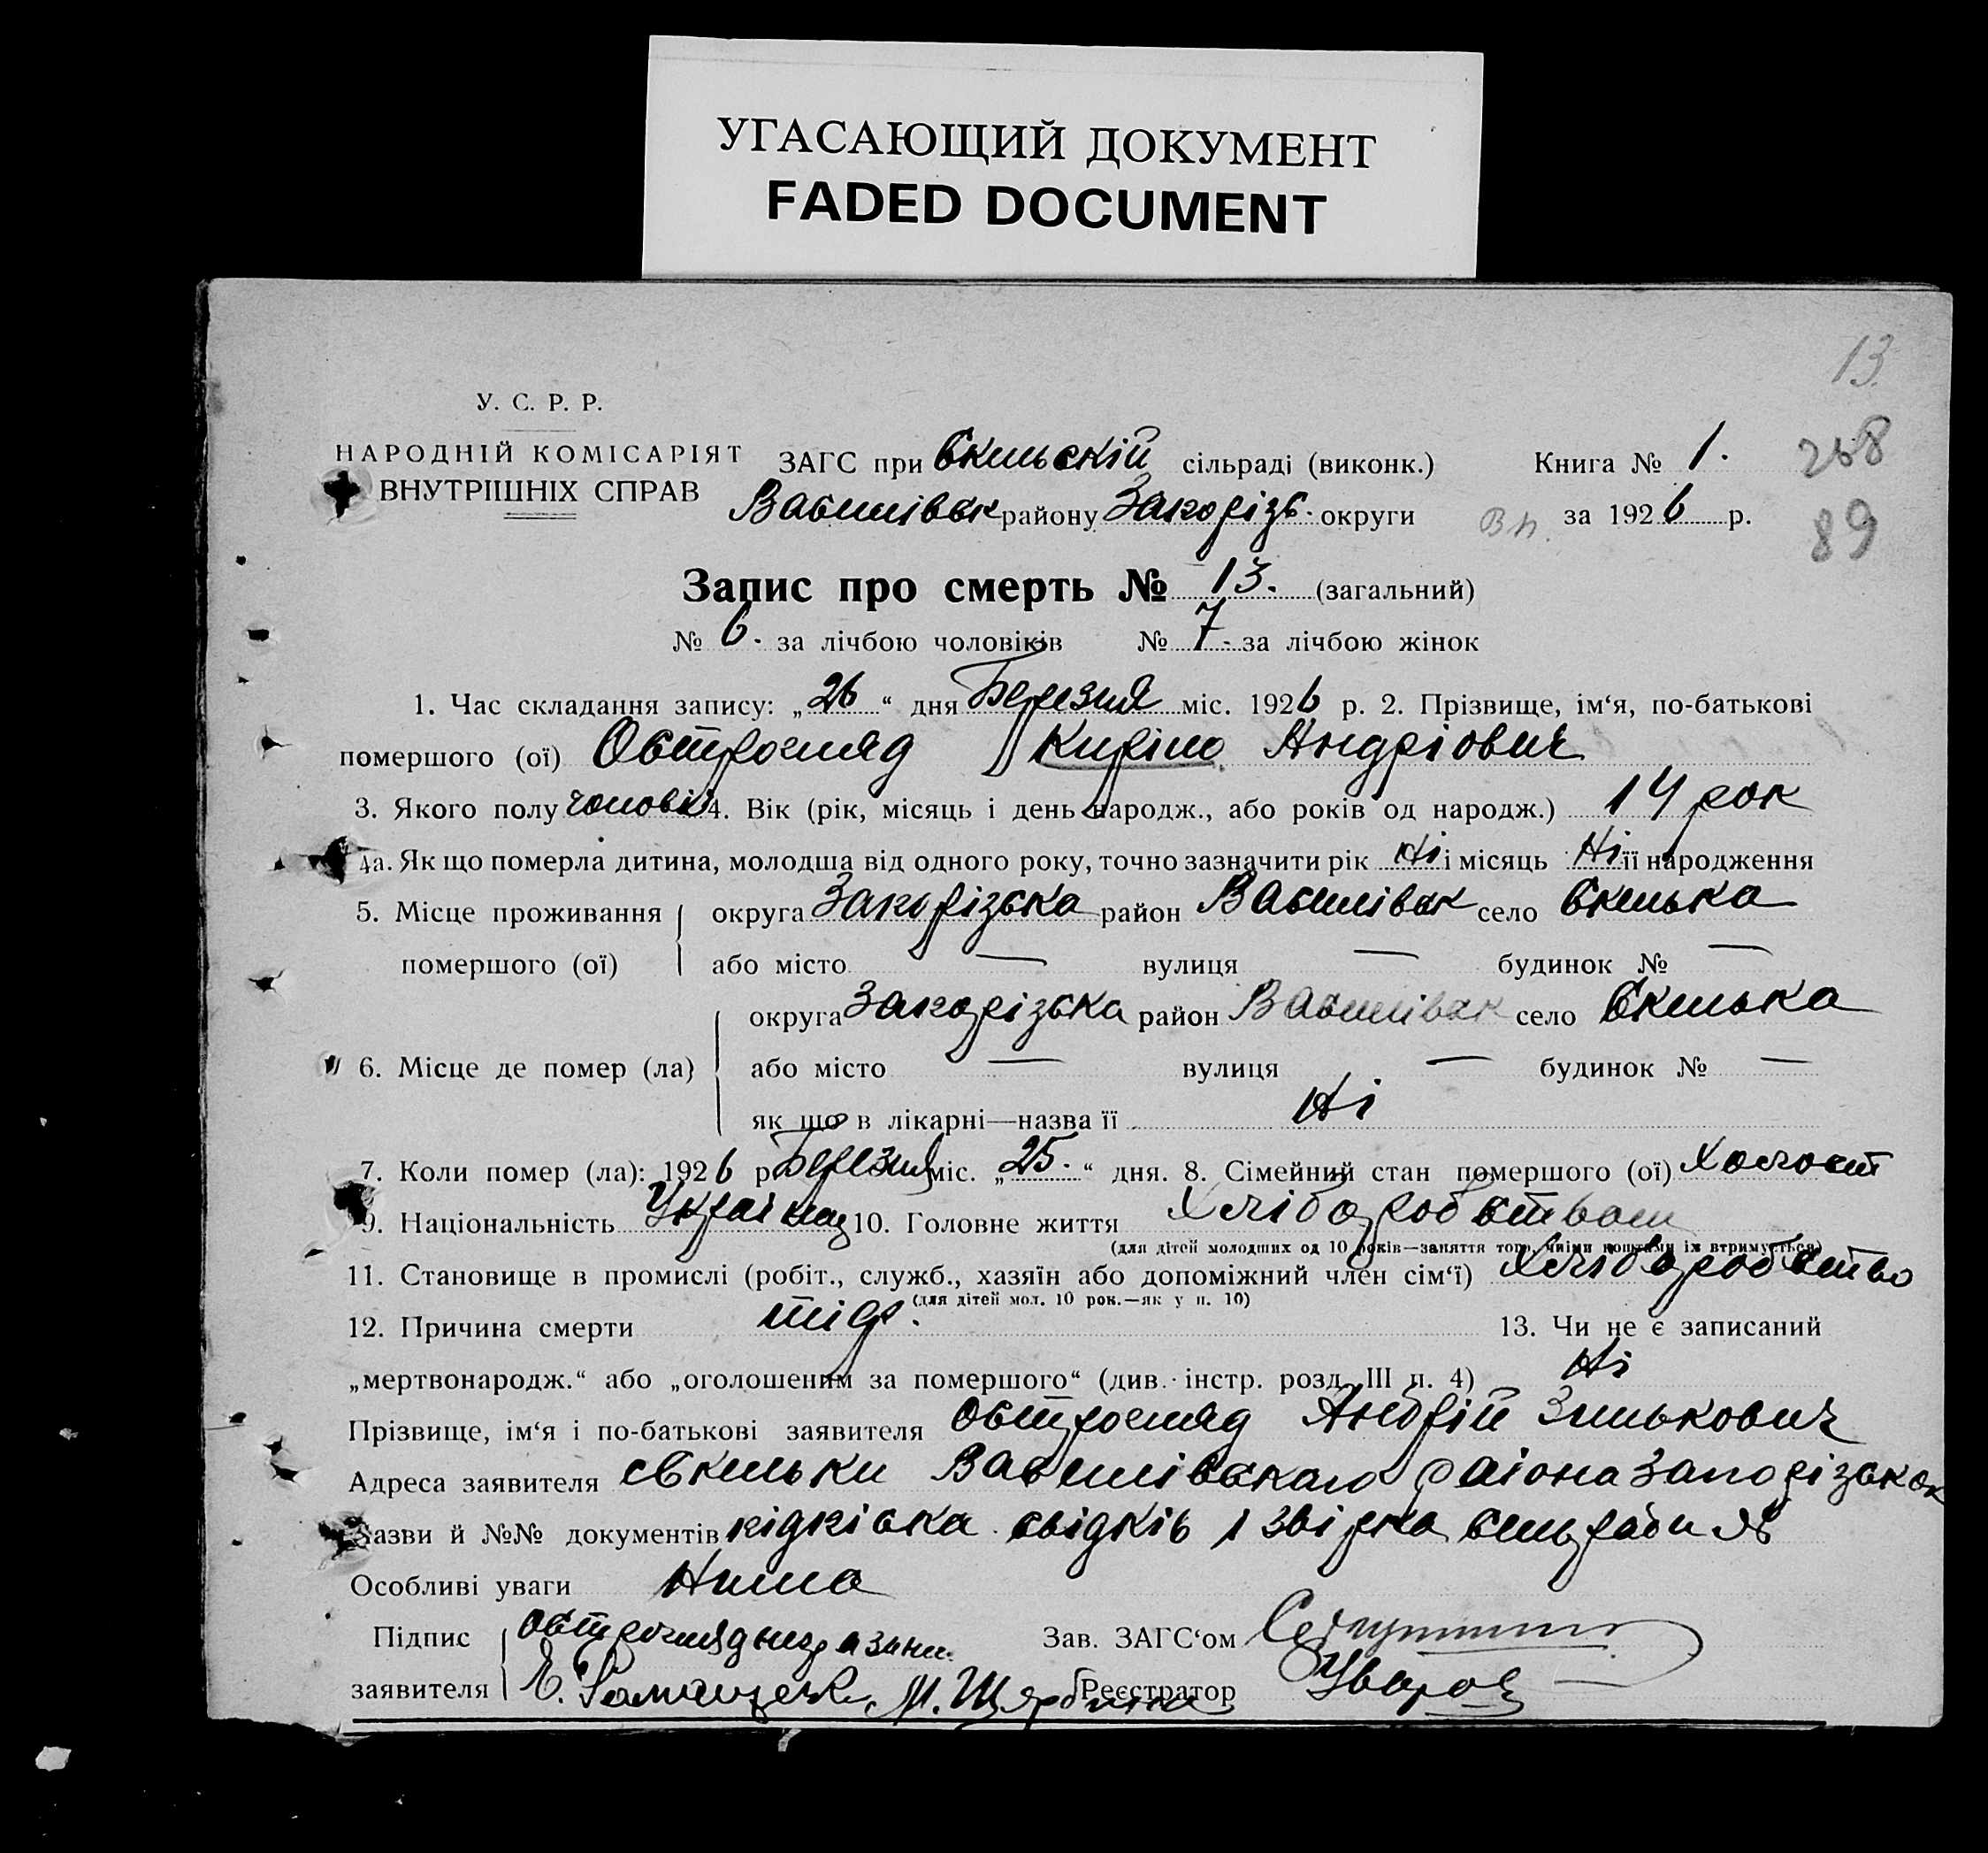 УГАСАЮЩИЙ ДОКУМЕНТ
FADED DOCUMENT
13
У. С. Р. Р.
НАРОДНІЙ КОМІСАРІЯТ
ВНУТРІШНІХ СПРАВ
ЗАГС при Скельскій сільраді (виконк.) Книга № 1. 258
Василівск району Запорізь. округи Вп. за 1926 р. 89
Запис про смерть № 13. (загальний)
№ 6. за лічбою чоловіків № 7. за лічбою жінок
1. Час складання запису: „26“ дня Березня міс. 1926 р. 2. Прізвище, ім‘я, по-батькові
помершого (ої) Острогляд Кирило Андріович
3. Якого полу чоловік 4. Вік (рік, місяць і день народж., або років од народж.) 14 рок
4а. Як що померла дитина, молодша від одного року, точно зазначити рік Ні і місяць Ні її народження
5. Місце проживання помершого (ої) округа Запорізська район Василівск село Скелька
або місто — вулиця — будинок № —
6. Місце де помер (ла) округа Запорізська район Василівск село Скелька
або місто — вулиця — будинок № —
як що в лікарні—назва її Ні
7. Коли помер (ла): 1926 р Березня міс. „25.“ дня. 8. Сімейний стан помершого (ої) Холост
9. Національність Українец 10. Головне життя Хліборобством
(для дітей молодших од 10 років—заняття того, чиїми коштами їх втримується)
11. Становище в промислі (робіт., служб., хазяїн або допоміжний член сім‘ї) Хліборобство
(для дітей мол. 10 рок.—як у п. 10)
12. Причина смерти 13. Чи не є записаний
„мертвонародж.“ або „оголошеним за помершого“ (див. інстр. розд. III п. 4) Ні
Прізвище, ім‘я і по-батькові заявителя Острогляд Андрій Зинькович
Адреса заявителя Скельки Василівскаго раіона Запорізськ
Назви й №№ документів підпіска свідків і звірка
Особливі уваги Нима
Підпис заявителя Острогляд Зав. ЗАГС‘ом
Е. М. Щербина Реєстратор Уваров